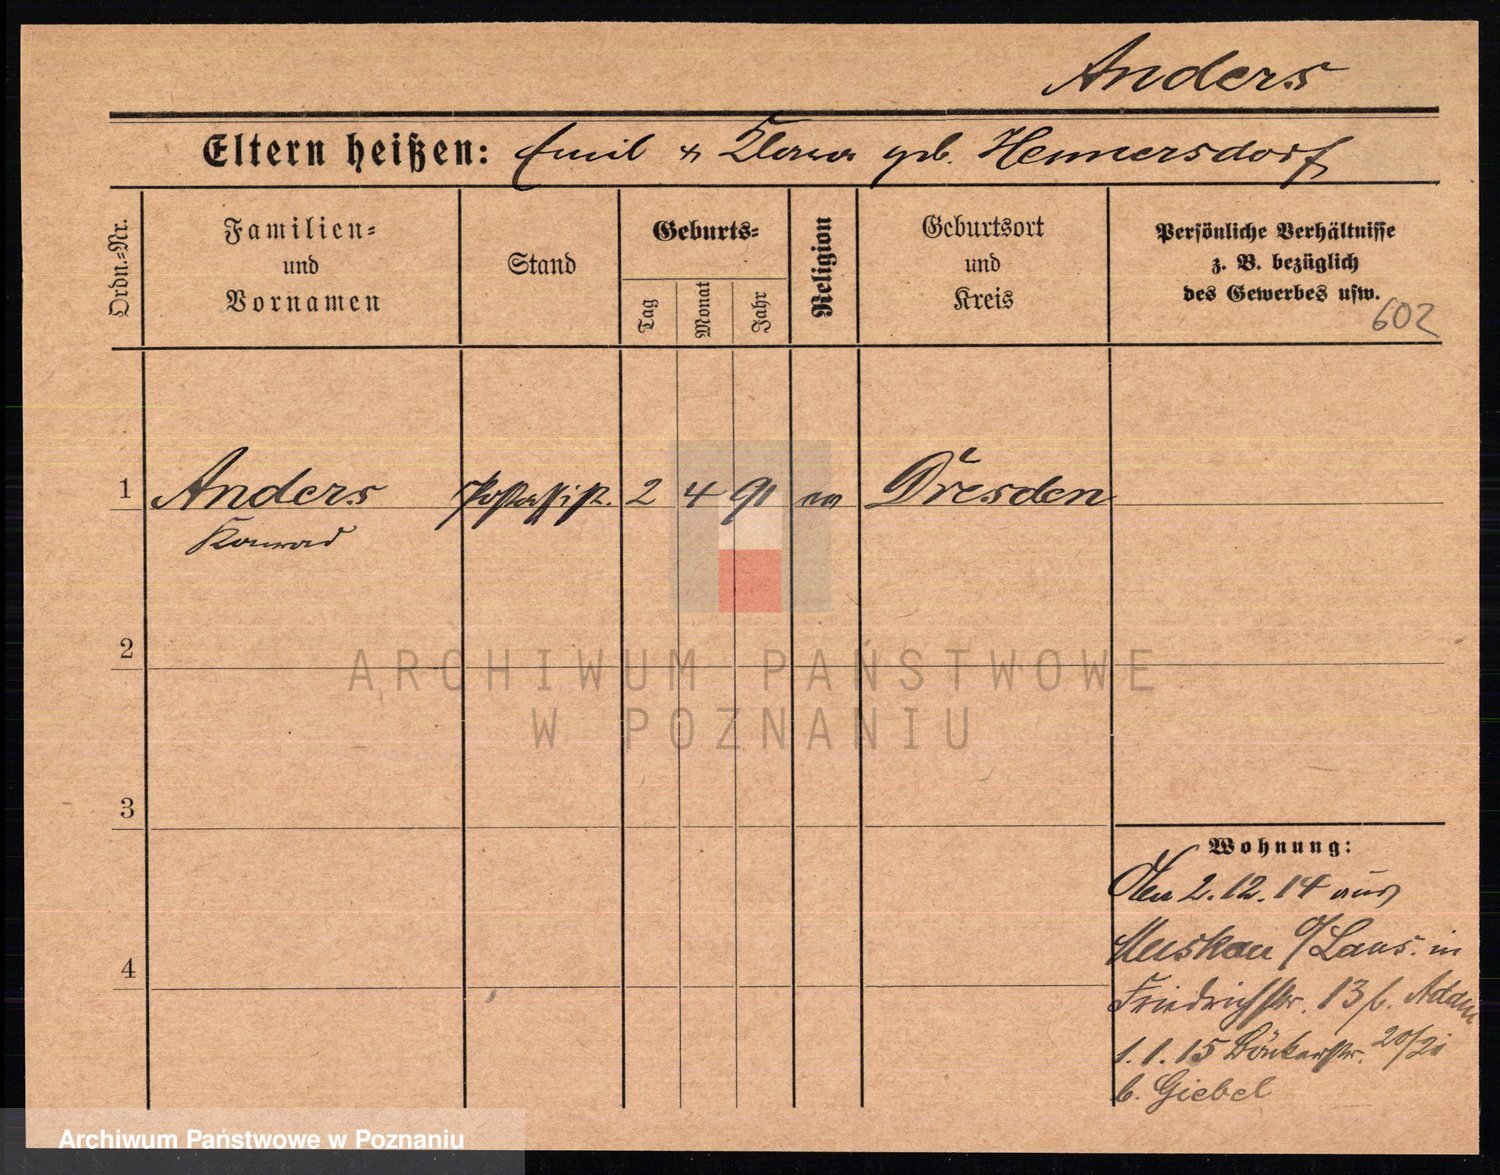 Anders
Eltern heißen: Emil & Klara geb. Hennersdorf
Ordn.=Nr.
Familien=
und
Vornamen
Stand
Geburts=
Tag
Monat
Jahr
Religion
Geburtsort
und
Kreis
Persönliche Verhältnisse
z. B. bezüglich
des Gewerbes usw.
602
1 Anders Postassist. 2 4 91 ev Dresden
Konrad
2
ARCHIWUM PAŃSTWOWE
W POZNANIU
3
Wohnung:
Den 2.12.14 aus
Muskau o/Laus. in
4
Friedrichstr. 13 b. Adam
1.1.15 Bäckerstr. 20/21
b. Giebel
Archiwum Państwowe w Poznaniu